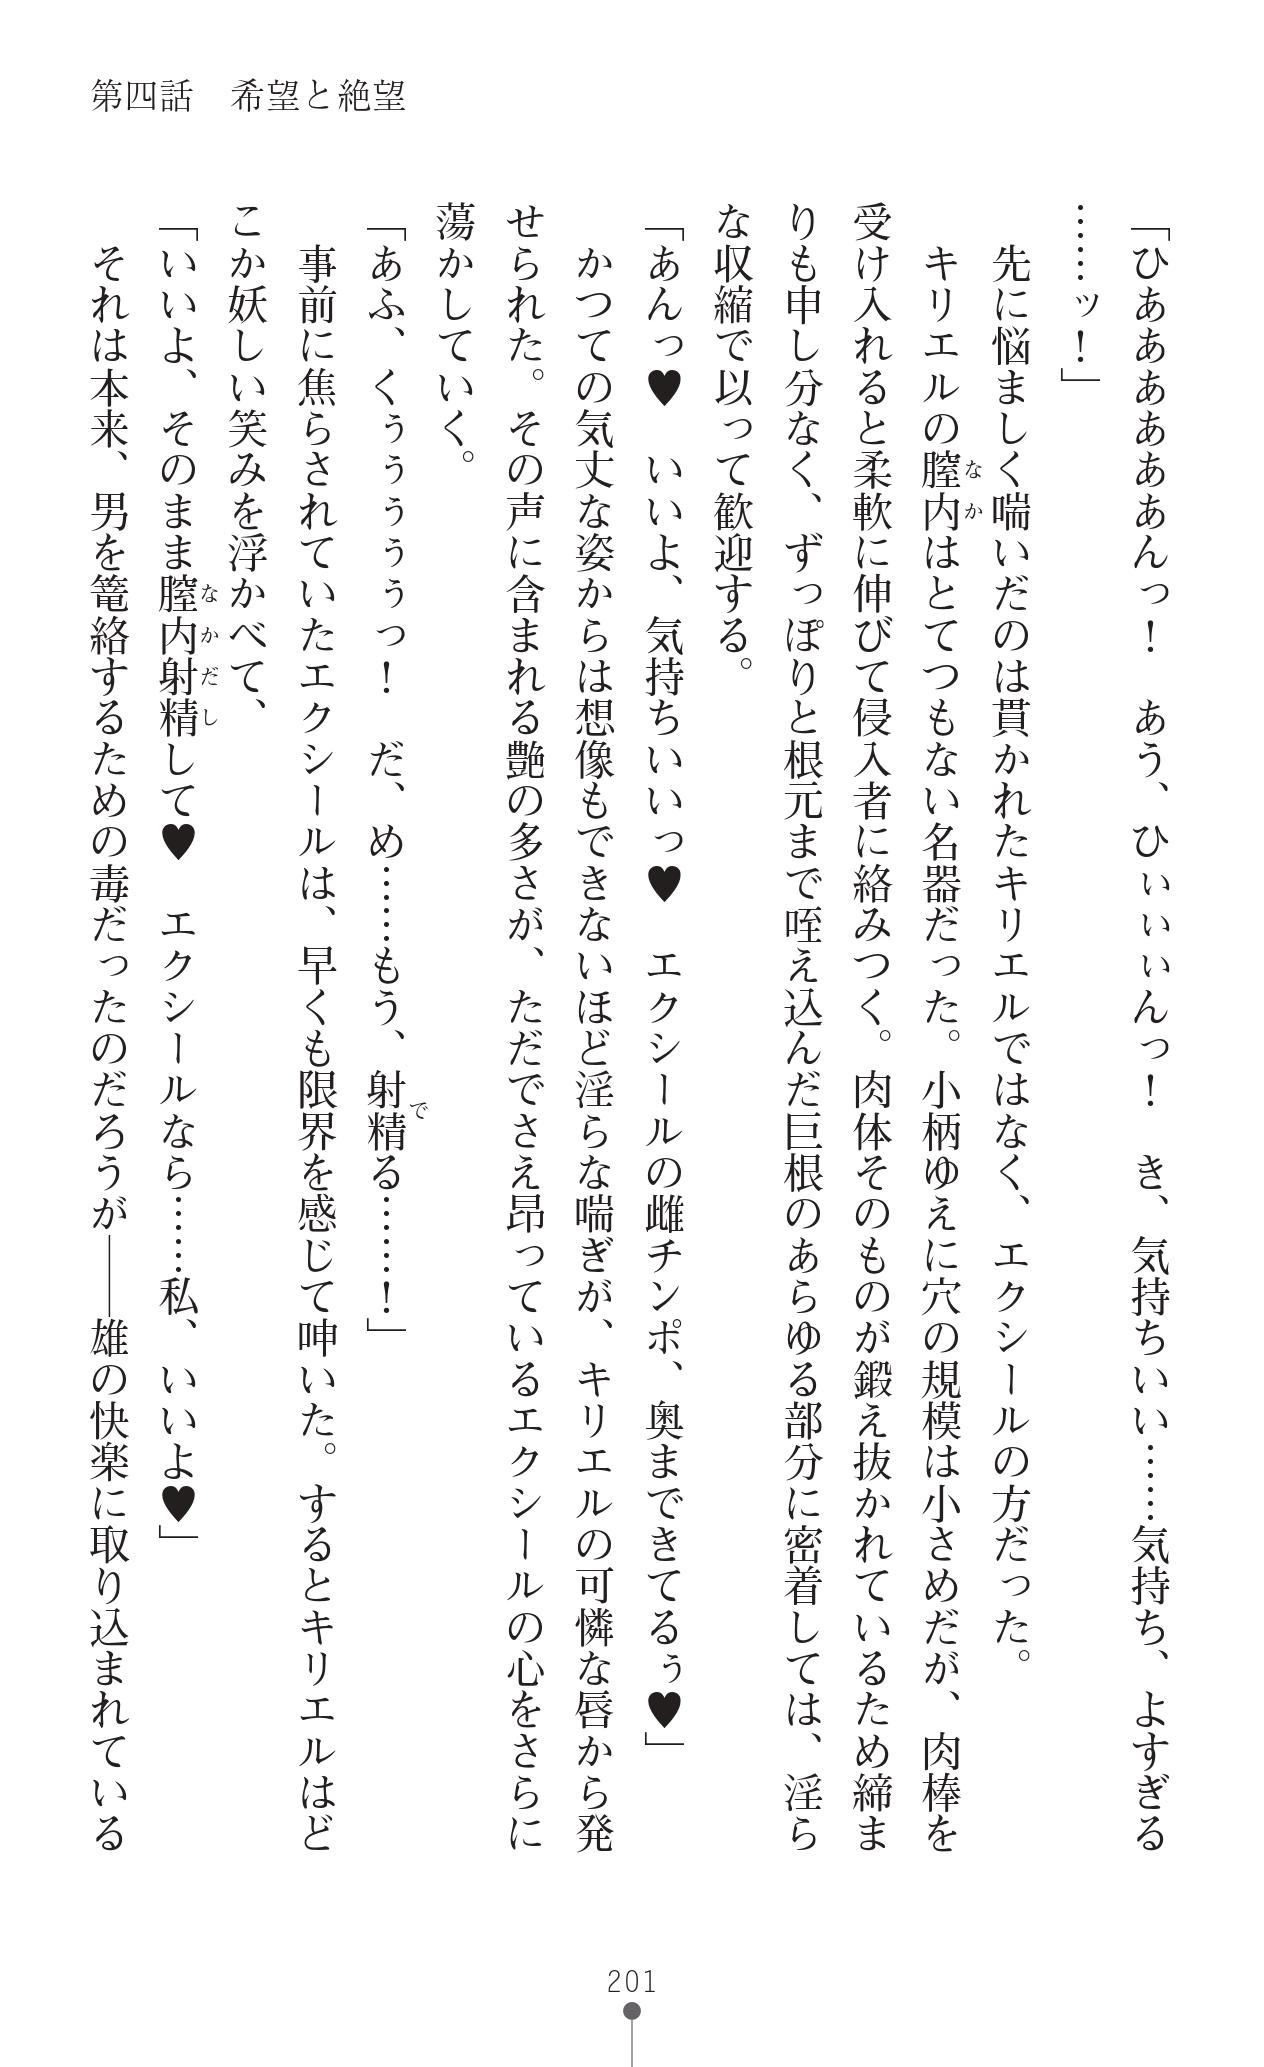 第四話　希望と絶望
「ひああああああんっ！　あう、ひぃぃぃんっ！　き、気持ちいい……気持ち、よすぎる
……ッ！」
　先に悩ましく喘いだのは貫かれたキリエルではなく、エクシールの方だった。
　キリエルの膣内なかはとてつもない名器だった。小柄ゆえに穴の規模は小さめだが、肉棒を
受け入れると柔軟に伸びて侵入者に絡みつく。肉体そのものが鍛え抜かれているため締ま
りも申し分なく、ずっぽりと根元まで咥え込んだ巨根のあらゆる部分に密着しては、淫ら
な収縮で以って歓迎する。
「あんっ♥　いいよ、気持ちいいっ♥　エクシールの雌チンポ、奥まできてるぅ♥」
　かつての気丈な姿からは想像もできないほど淫らな喘ぎが、キリエルの可憐な唇から発
せられた。その声に含まれる艶の多さが、ただでさえ昂っているエクシールの心をさらに
蕩かしていく。
「あふ、くぅぅぅぅぅっ！　だ、め……もう、射精でる……！」
　事前に焦らされていたエクシールは、早くも限界を感じて呻いた。するとキリエルはど
こか妖しい笑みを浮かべて、
「いいよ、そのまま膣内射精なかだしして♥　エクシールなら……私、いいよ♥」
　それは本来、男を篭絡するための毒だったのだろうが――雄の快楽に取り込まれている
201